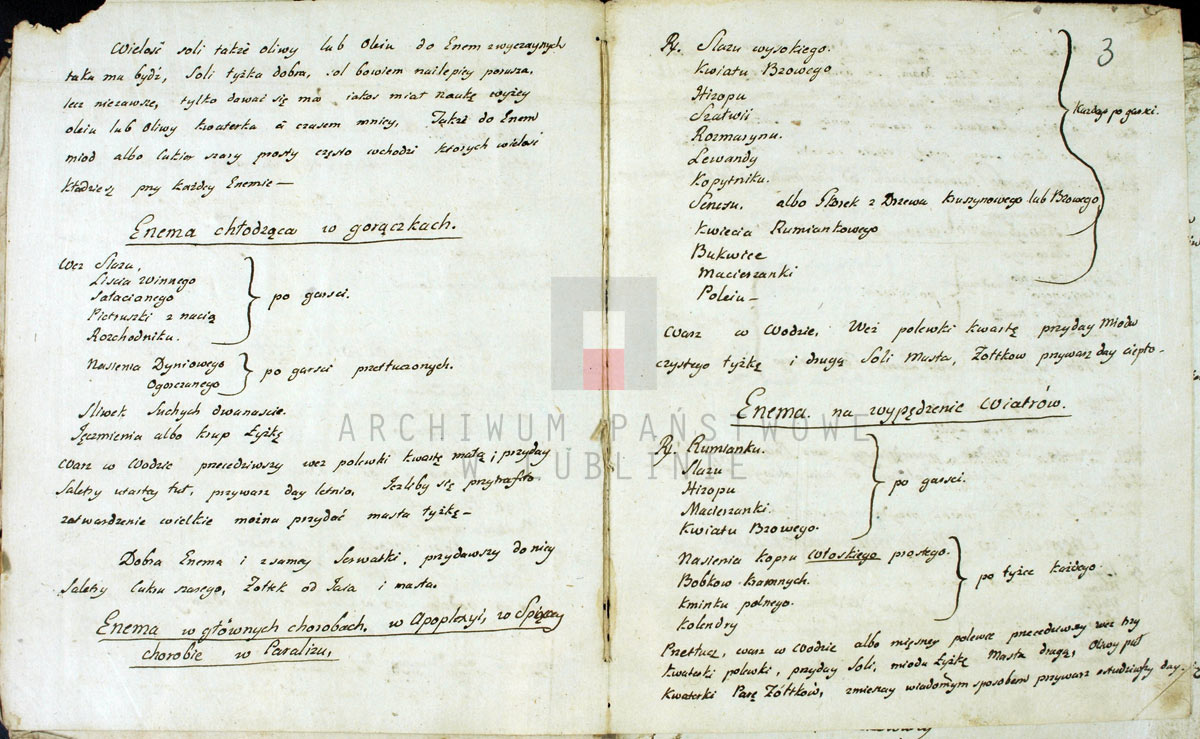 Wielość soli także oliwy lub Oleiu do Enem zwyczaynych
taka ma bydź, Soli łyżka dobra, sol bowiem nailepiey porusza,
lecz niezawsze, tylko dować się ma iakoś miał naukę wyżey
oleiu lub Oliwy kwaterka a czasem mniey, Także do Enem
miod albo Cukier szary prosty często wchodzi których wielość
kładzie się przy każdey Enemie —
Enema chłodząca w gorączkach.
Weź Slazu,
Liścia Winnego
Sałacianego
Pietruszki z nacią
Rozchodniku.
po garści.
Nasienia Dyniowego
Ogorczanego
po garści przetłuczonych.
Sliwek Suchych dwanaście.
Jęczmienia albo krup Łyżkę
Warz w Wodzie precedziwszy weź polewki kwartę małą i przyday
Saletry utartey łut, przywarz day letnio, Jeżliby się przytrafiło
zatwardzenie wielkie można przydać masła łyżkę —
Dobra Enema i z samey Serwatki, przydawszy do niey
Saletry Cukru szarego, Żołtek od Jaia i masła.
Enema w głównych chorobach. w Apoplexyi, w Spiącey
chorobie w Paraliżu,
3
Rp. Slazu wysokiego.
Kwiatu Bzowego
Hizopu
Szałwii
Rozmarynu.
Lewandy
Kopytniku.
Senesu. albo Skorek z Drzewa kruszynowego lub Bzowego,
Kwiecia Rumiankowego
Bukwice
Macierzanki
Poleiu —
Każdego po garści.
Warz w Wodzie, Weź polewki kwartę przyday Miodu
czystego łyżkę i drugą Soli Masła, Żołtkow przywarz day ciepło -
Enema na wypędzenie Wiatrów.
Rp. Rumianku.
Slazu
Hizopu
Macierzanki.
Kwiatu Bzowego.
po garści.
Nasienia kopru Włoskiego prostego.
Bobkow kramnych.
kminku polnego.
Kolendry
po łyżce każdego
Przetłucz, warz w Wodzie albo mięsney polewce precedziwszy weź trzy
kwaterki polewki, przyday Soli, miodu Łyżkę Masła drugą, Oliwy puł
kwaterki Parę Żółtków, zmieszay wiadomym sposobem przywarz ostudziwszy day -
ARCHIWUM PAŃSTWOWE
W LUBLINIE